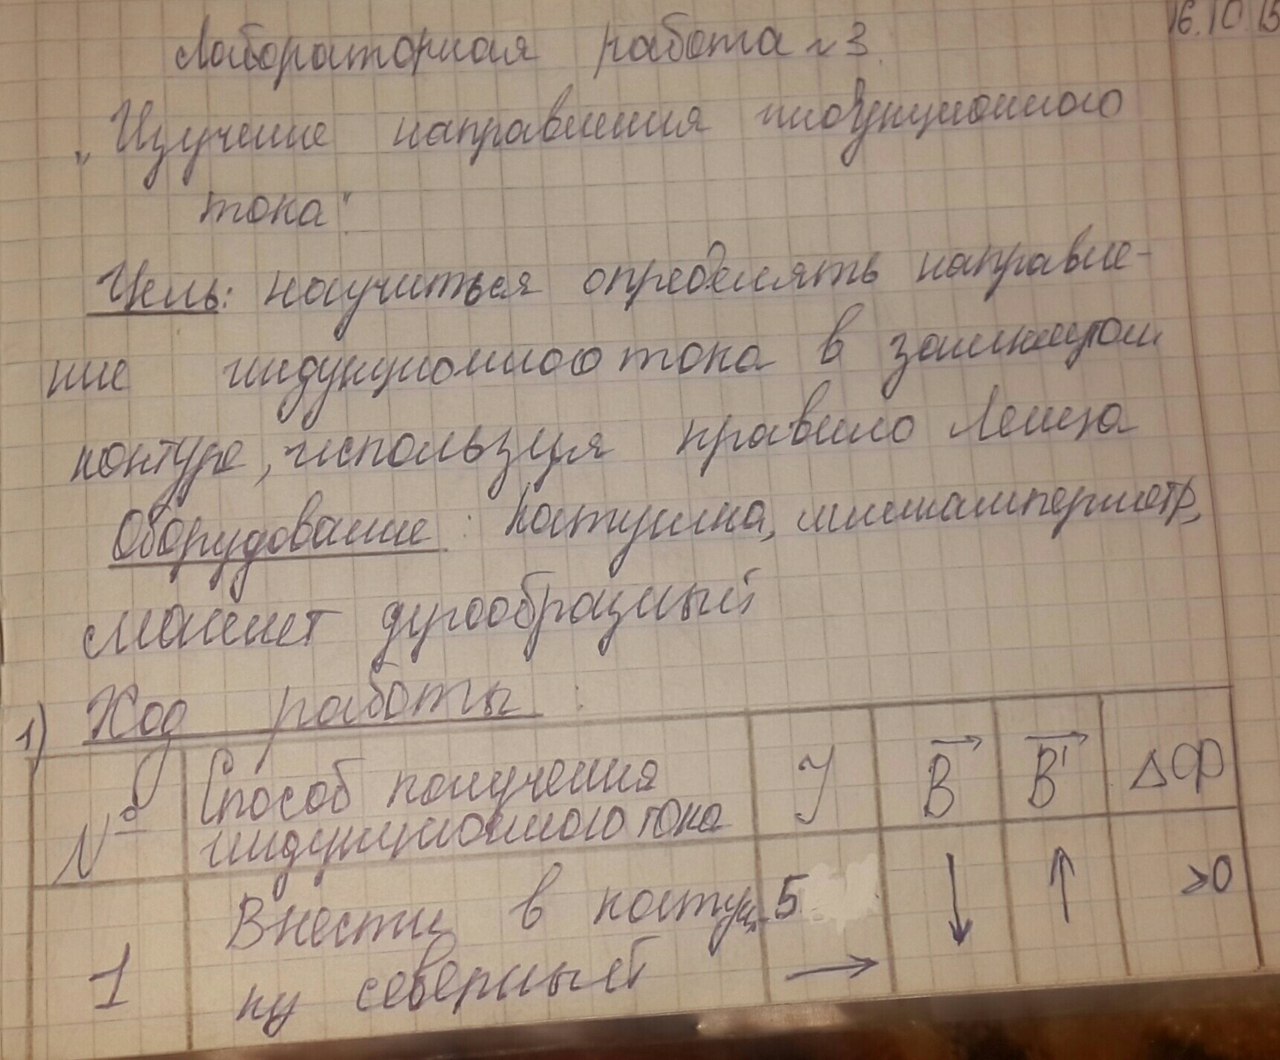 16.10.15
Лабораторная работа №3.
„Изучение направления индукционного
тока"
Цель: научиться определять направле-
ние индукционного тока в замкнутом
контуре, используя правило Ленца
Оборудование: катушка, миллиамперметр,
магнит дугообразный
1) Ход работы:
№ Способ получения индукционного тока J B B' ΔФ
1 Внести в катуш- 5 → ↓ ↑ >0
ку северный